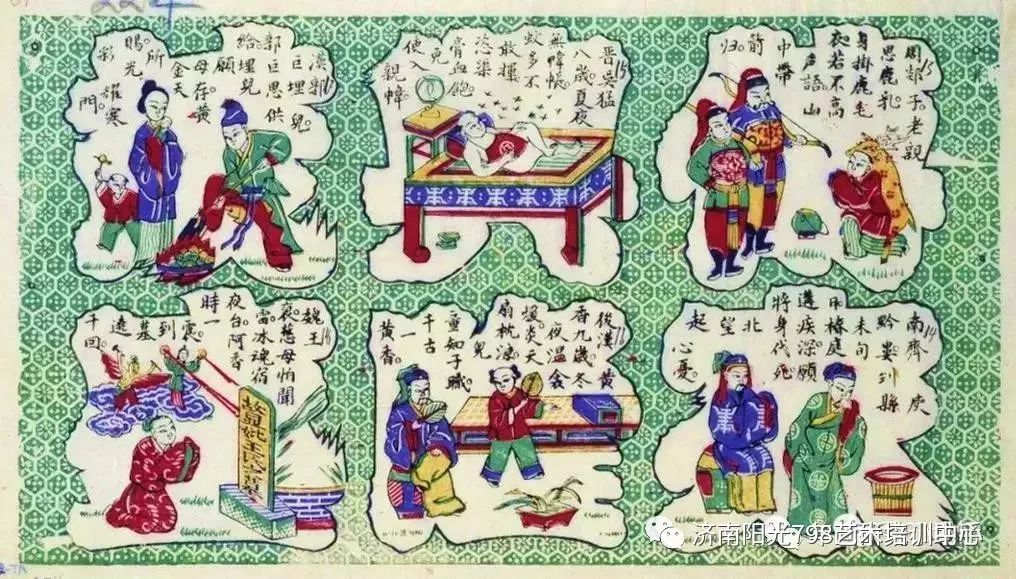 周郯子。老親
思鹿乳。
身掛鹿毛
衣若不高
声語山
中帶
箭
归
15
晋吳猛
八歲夏夜
無幃帳
蚊多不
敢揮
恣渠
膏血飽
免
使入
親幃
漢郭
巨埋兒
郭巨思供
給。埋兒
願母存。黄
金天
所
賜。光
彩耀寒
門。
南齊庾
黔婁到縣
未旬
日椿庭
遘疾。深願
將身代死
北
望
起
心憂。
14
後漢黄
香九歲冬
夜温衾
煖。炎天
扇枕凉
兒
童知子職
千古
一
黄香。
魏王
裒。慈母怕聞
雷。冰魂宿
夜台。阿香
時一
震。
到墓
遶
千回。
济南阳光798艺术培训中心